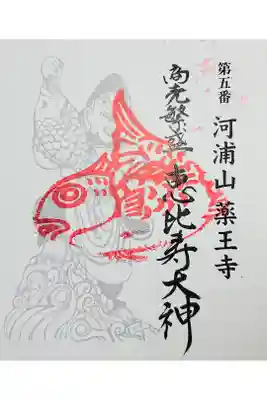 第五番
河浦山 薬王寺
恵比寿大神
商売繁盛